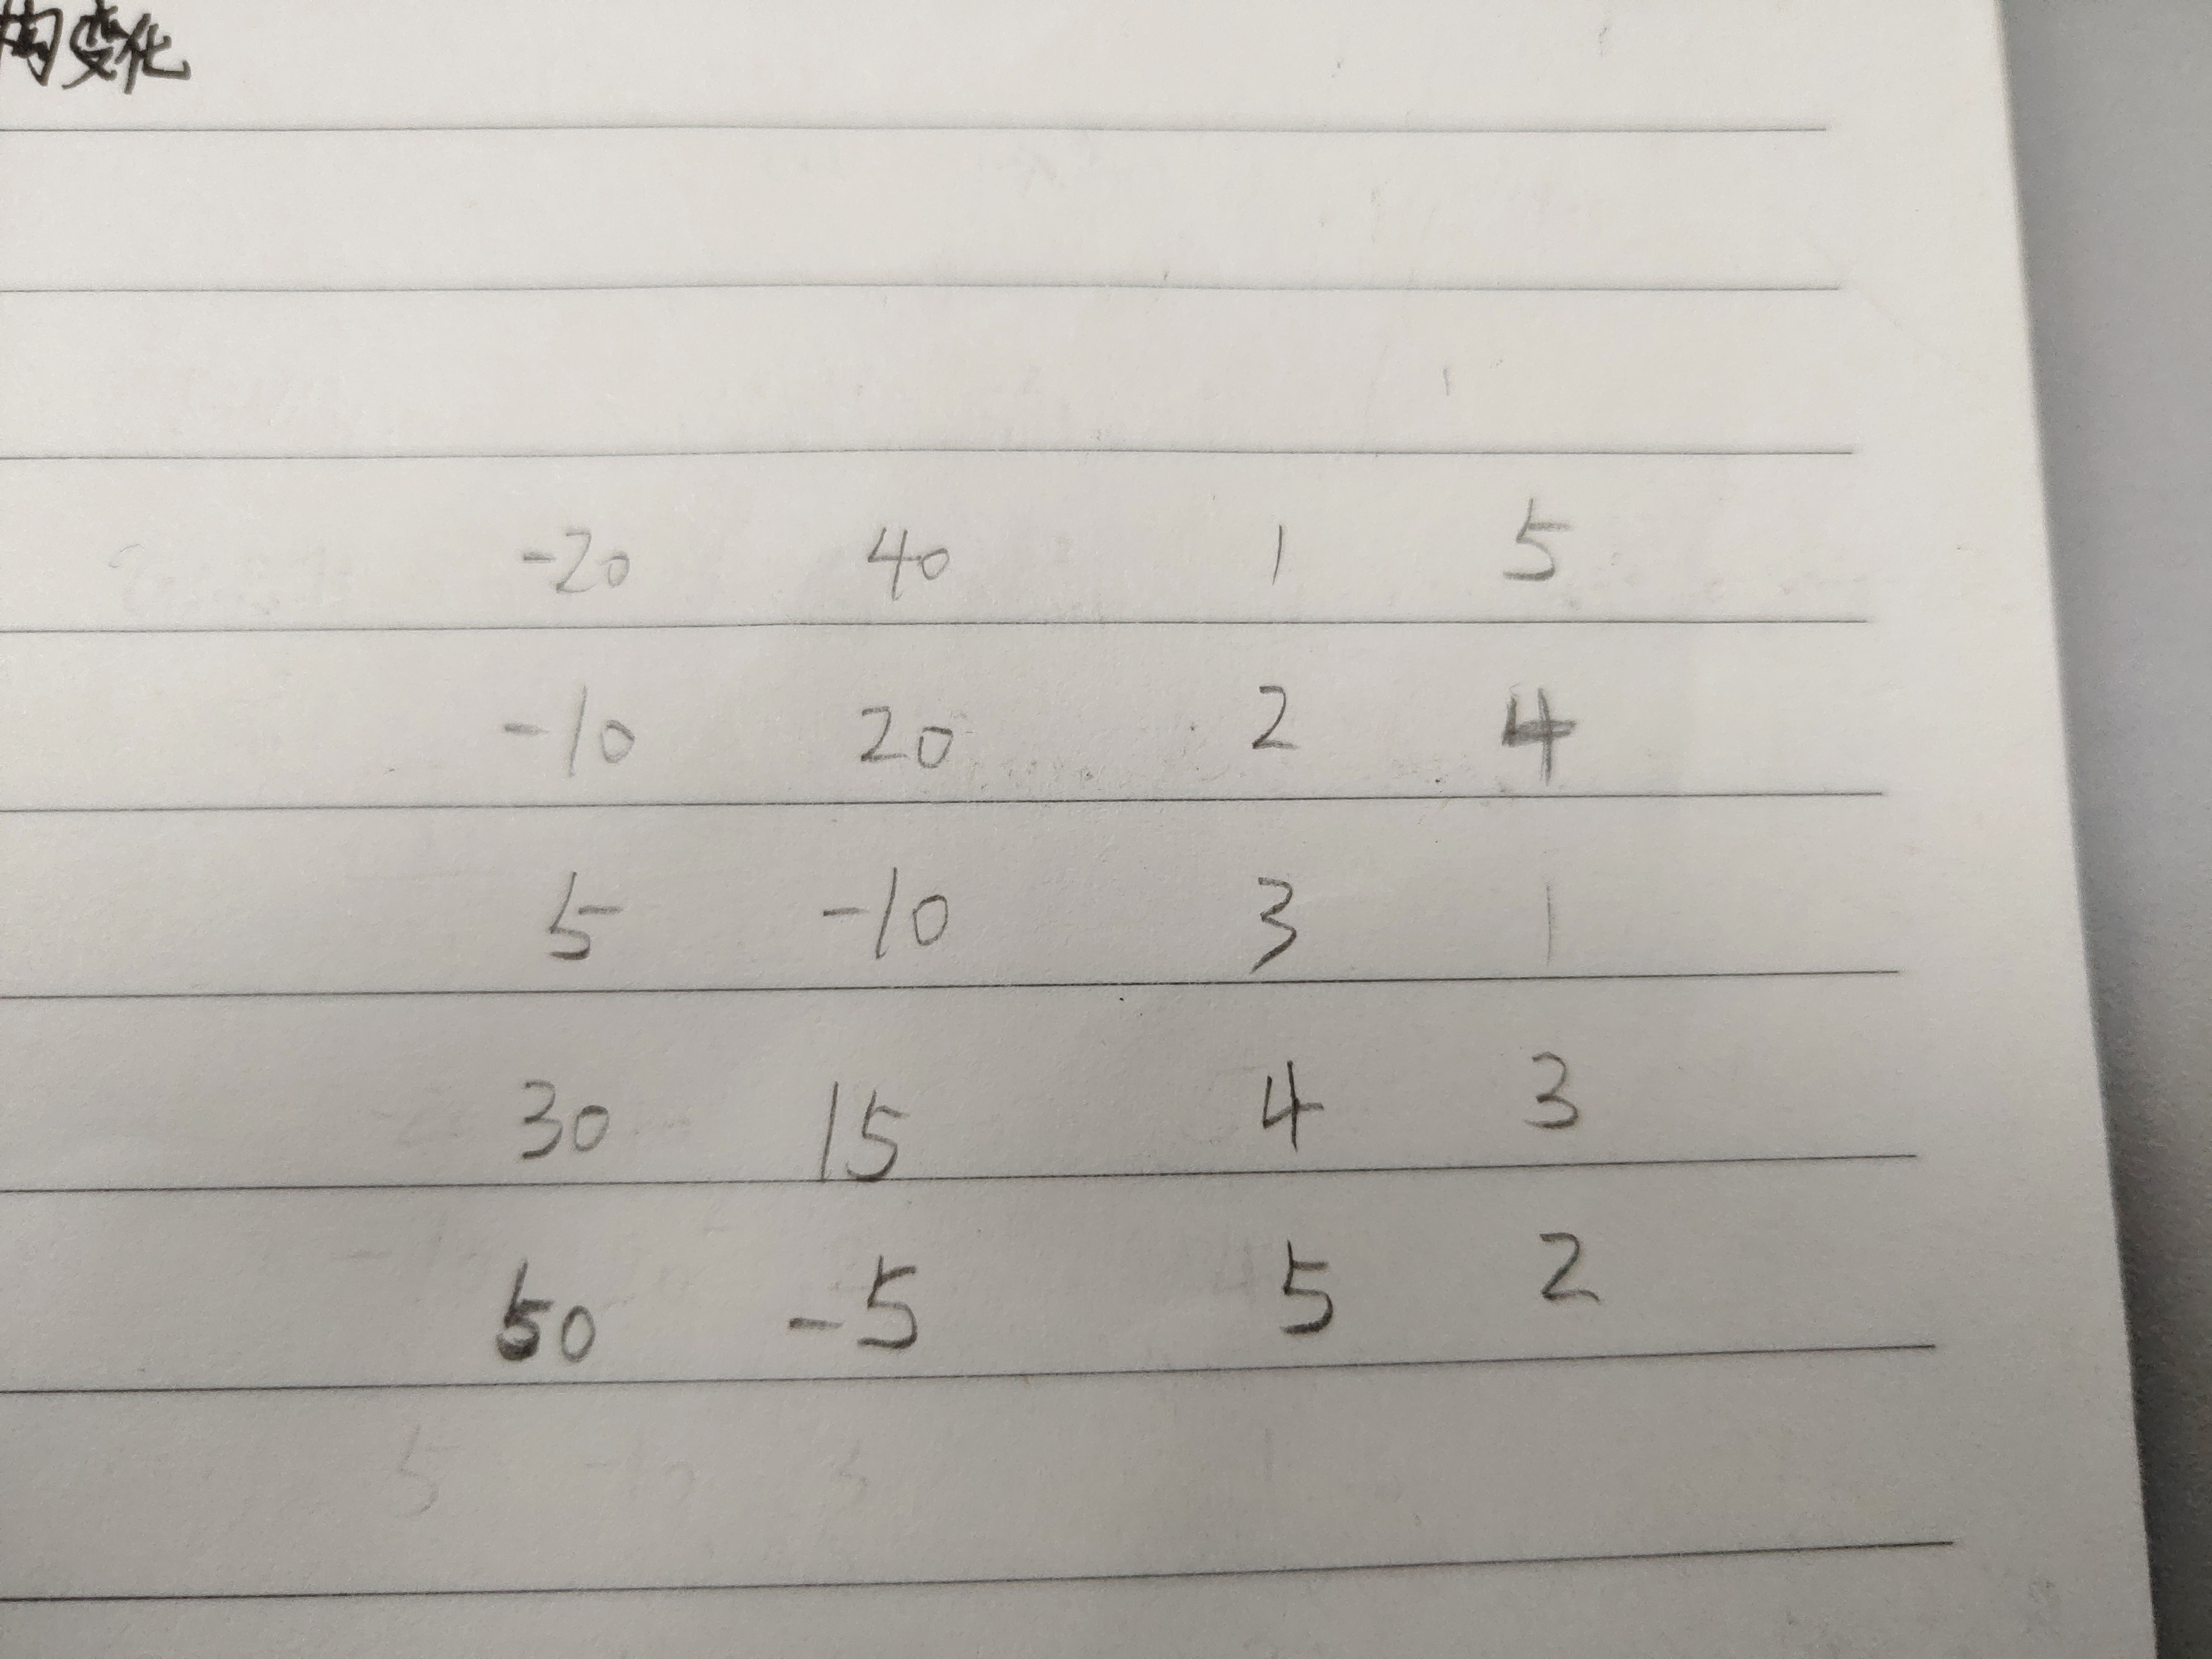 构变化
-20 40 1 5
-10 20 2 4
5 -10 3 1
30 15 4 3
50 -5 5 2